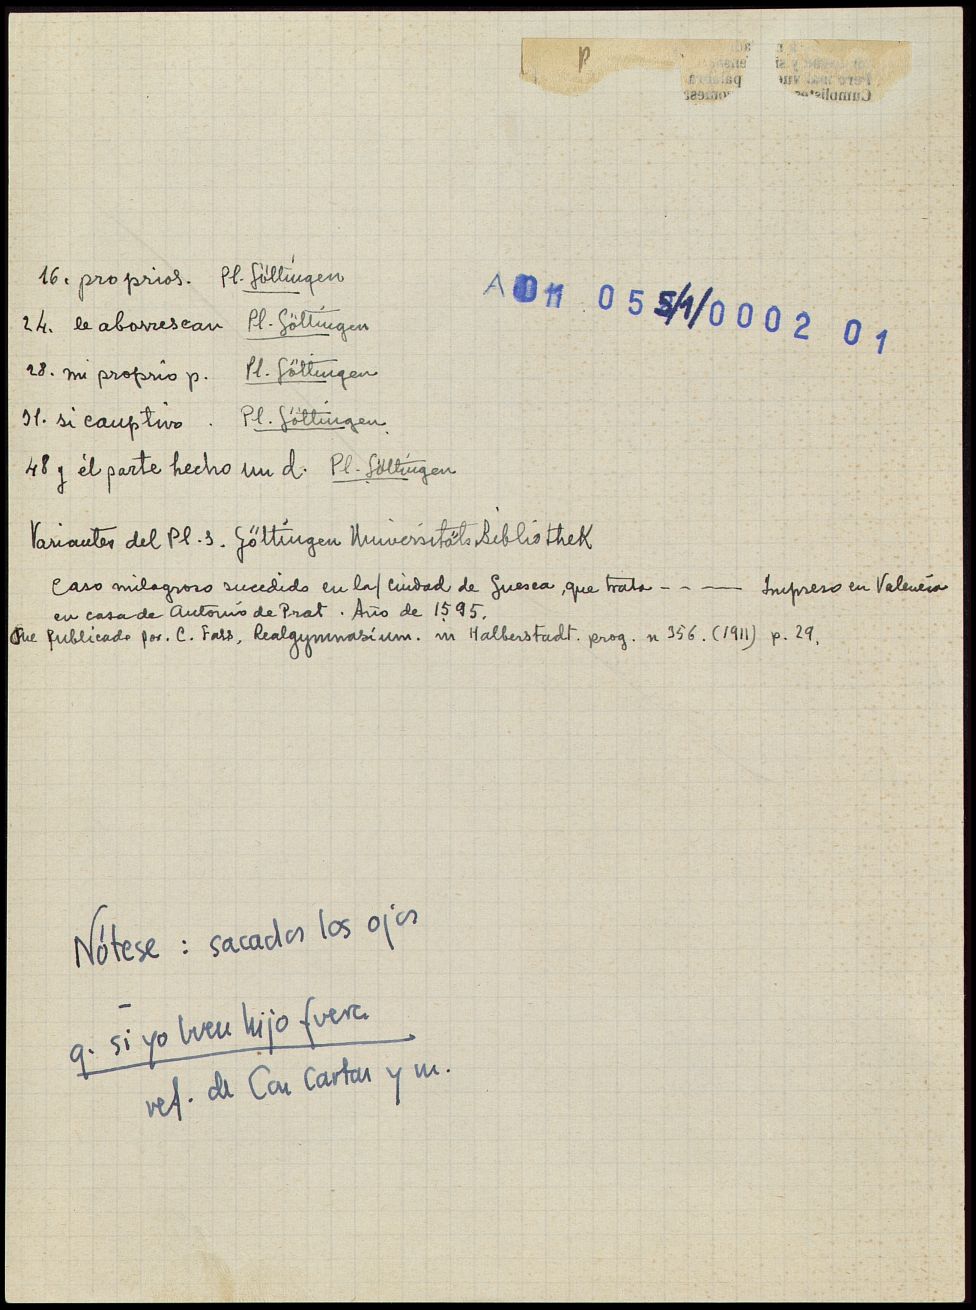 16. proprios. Pl. Göttingen
A 055/1/0002 01
24. le aborrescan Pl. Göttingen
28. mi proprio p. Pl. Göttingen
31. si cauptivo . Pl. Göttingen
48 y él parte hecho un d. Pl. Göttingen
Variantes del Pl. s. Göttingen Universitäts Bibliothek
Caso milagroso sucedido en la ciudad de Guesca, que trata - - - - Impreso en Valencia
en casa de Antonio de Prat. Año de 1595.
Fue publicado por. C. Fass, Realgymnasium. in Halberstadt. prog. n 356. (1911) p. 29.
Nótese : sacados los ojos
q. si yo buen hijo fuera
ref. de Con Cartas y m.